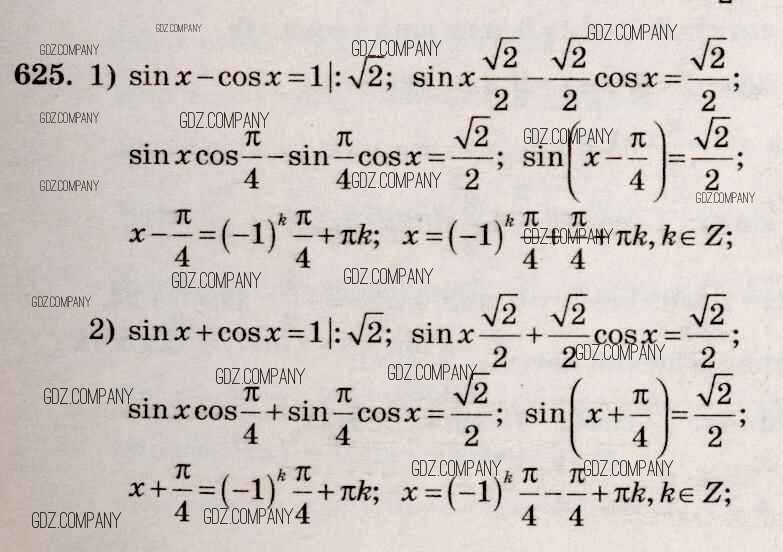 GDZ.COMPANY
GDZ.COMPANY GDZ.COMPANY GDZ.COMPANY
625. 1) sin x − cos x = 1|: √2; sin x √2/2 − √2/2 cos x = √2/2;
GDZ.COMPANY GDZ.COMPANY GDZ.COMPANY
sin x cos π/4 − sin π/4 cos x = √2/2; sin(x − π/4) = √2/2;
GDZ.COMPANY GDZ.COMPANY GDZ.COMPANY
x − π/4 = (−1)^k π/4 + πk; x = (−1)^k π/4 + π/4 + πk, k ∈ Z;
GDZ.COMPANY
GDZ.COMPANY GDZ.COMPANY
GDZ.COMPANY
2) sin x + cos x = 1|: √2; sin x √2/2 + √2/2 cos x = √2/2;
GDZ.COMPANY
GDZ.COMPANY GDZ.COMPANY GDZ.COMPANY
sin x cos π/4 + sin π/4 cos x = √2/2; sin(x + π/4) = √2/2;
GDZ.COMPANY GDZ.COMPANY
x + π/4 = (−1)^k π/4 + πk; x = (−1)^k π/4 − π/4 + πk, k ∈ Z;
GDZ.COMPANY GDZ.COMPANY